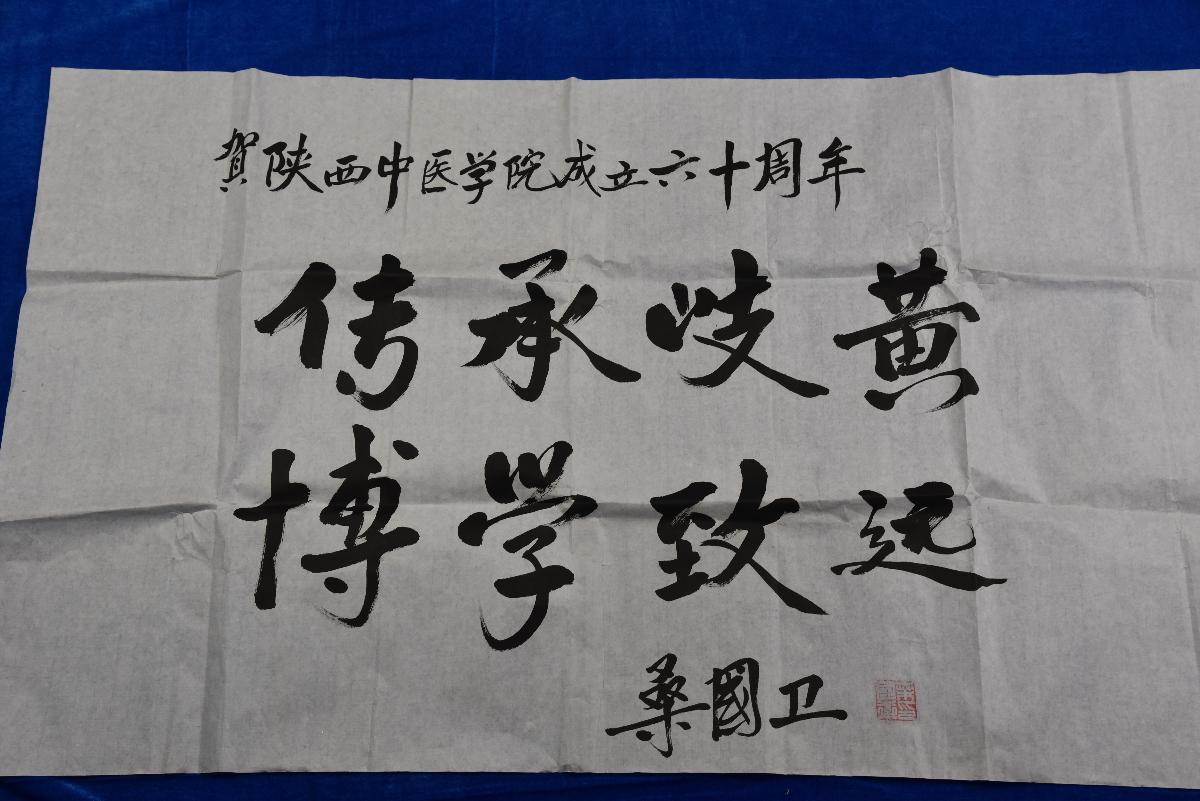 賀陕西中医学院成立六十周年
传承岐黄
博学致远
桑國卫